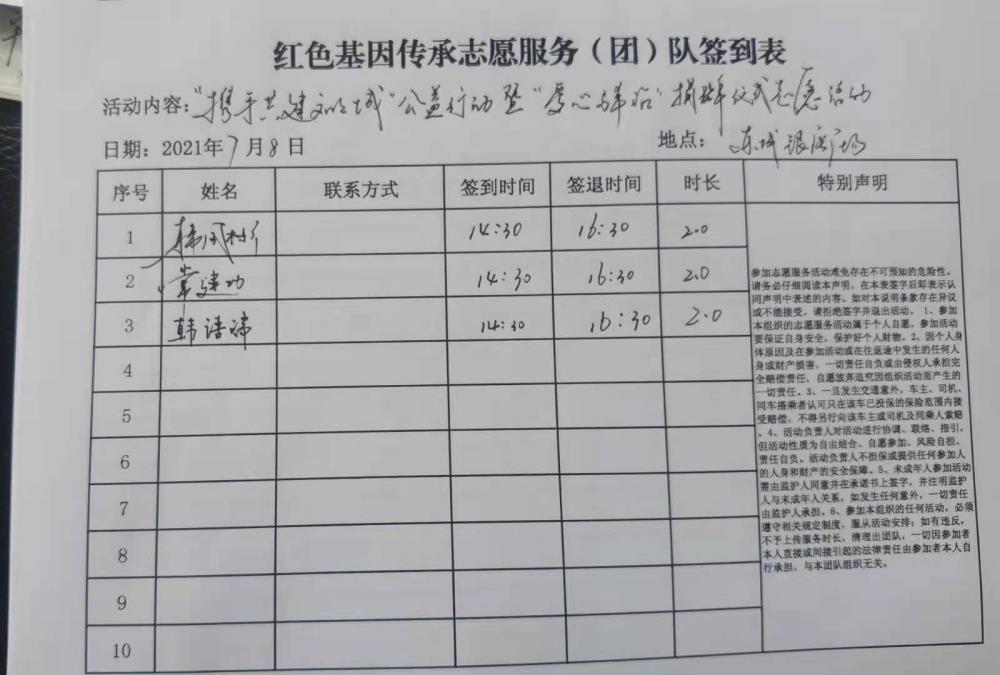 红色基因传承志愿服务（团）队签到表
活动内容："携手共建文明城"公益行动暨"爱心驿站"揭牌仪式志愿活动
日期：2021年7月8日 地点：东城银座广场
序号 姓名 联系方式 签到时间 签退时间 时长 特别声明
1 韩凤 14:30 16:30 2.0
2 常建功 14:30 16:30 2.0
3 韩语 14:30 16:30 2.0
4
5
6
7
8
9
10
参加志愿服务活动难免存在不可预知的危险性。
请务必仔细阅读本声明。在本表签字后即表示认
同声明中表述的内容。如对本说明条款存在异议
或不能接受，请拒绝签字并退出活动。 1、参加
本组织的志愿服务活动属于个人自愿。参加活动
要保证自身安全，保护好个人财物。2、因个人身
体原因及在参加活动或在往返途中发生的任何人
身或财产损害，一切责任自负或由侵权人承担完
全赔偿责任，自愿放弃追究因组织活动而产生的
一切责任。3、一旦发生交通意外，车主、司机、
同车搭乘者认可只在该车已投保的保险范围内接
受赔偿，不得另行向该车主或司机及同乘人索赔
。4、活动负责人对活动进行协调、联络、指引，
但活动性质为自由结合、自愿参加、风险自担、
责任自负。活动负责人不担保或提供任何参加人
的人身和财产的安全保障。5、未成年人参加活动
需由监护人同意并在承诺书上签字，并注明监护
人与未成年人关系，如发生任何意外，一切责任
由监护人承担。6、参加本组织的任何活动，必须
遵守相关规定制度，服从活动安排；如有违反，
不予上传服务时长，清理出团队，一切因参加者
本人直接或间接引起的法律责任由参加者本人自
行承担，与本团队组织无关。